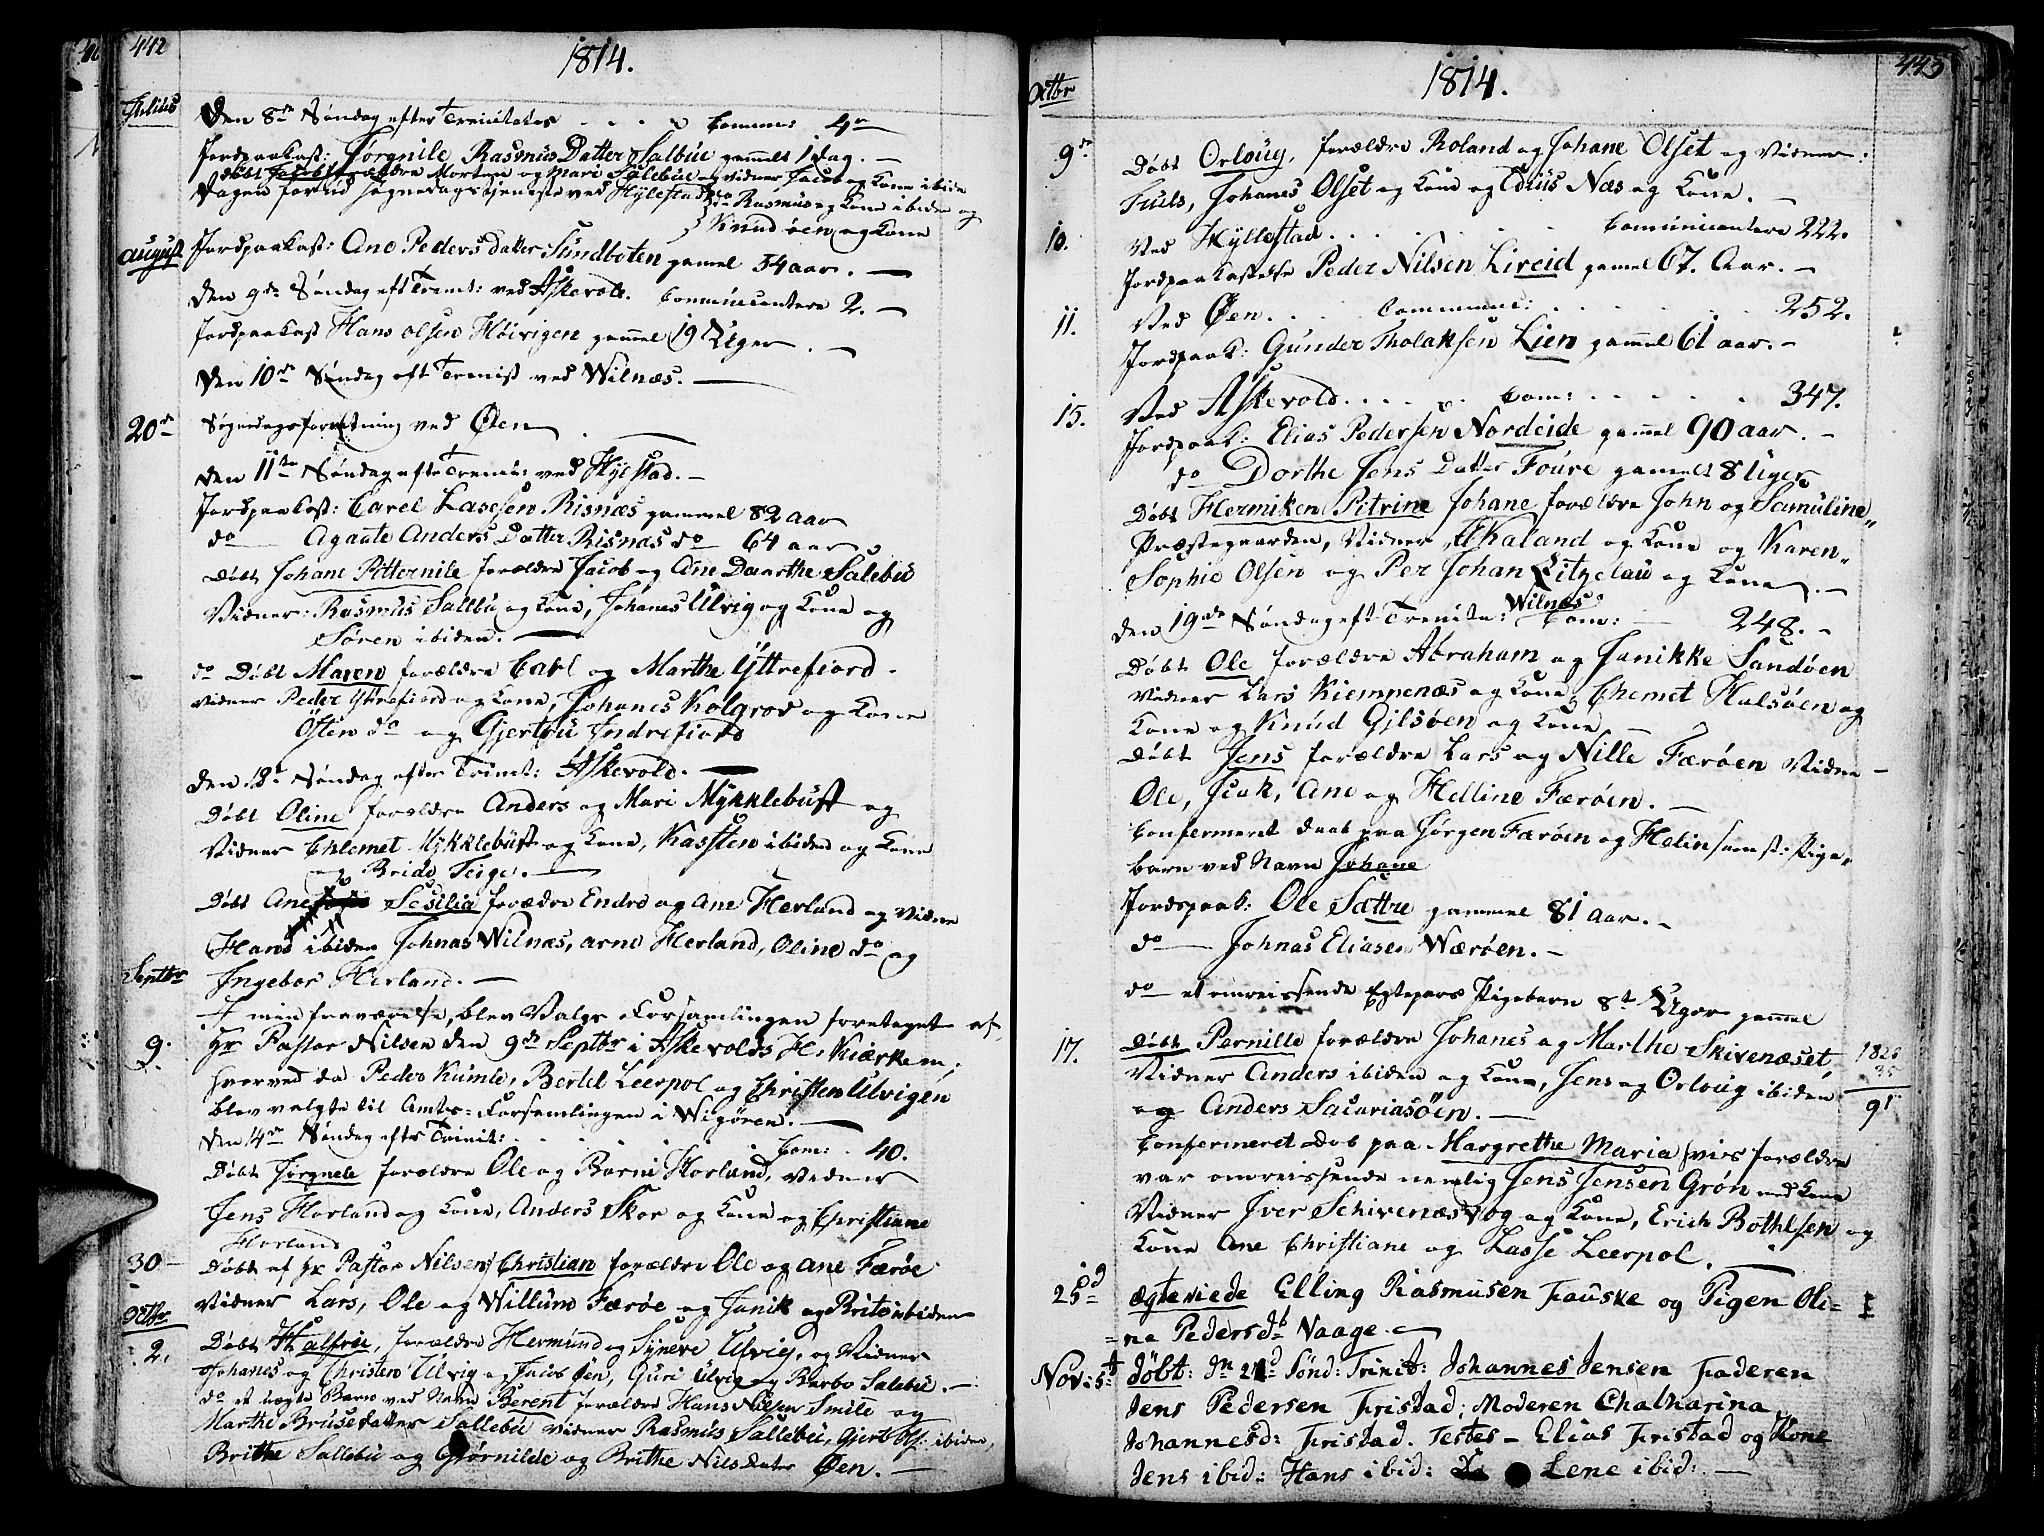 442
1814.
Julius
Den 8de Søndag efter Trenitates . . . . Comm: 4re
Jordpaakast: Jørgnile Rasmus Datter Salbue gammel 1 dag. —
Døbt Jacob forældre Morten og Mari Salebue og Vidner Jacob og Kone ibide
Dagen forud søgnedagstjeneste ved Hylestad do Rasmus og Kone ibiden og
Knud Øen og Kone
August
Jordpaakast: Ane Peders Datter Sundboten gamel 34 aar. —
Den 9de Søndag eft Trenit: ved Askevold. Communicantere 2. —
Jordpaakast Hans Olsen Høivigen gamel 19 Uger. —
Den 10de Søndag eft Trenist ved Wilnæs. —
20de
Søgnedagsforretning ved Øen —
Den 11te Søndag efte Trenit: ved Hylstad. —
Jordpaakast: Carel Lassesen Risnæs gammel 82 aar
do — Agaate Anders Datter Risnæs do 64 aar
Døbt Johane Petternile forældre Jacob og Ane Daarthe Salebu
Vidner: Rasmus Sallbu og Kone, Johanes Ulvig og Kone og
Søren ibiden. —
do Døbt Maren forældre Carl og Marthe Yttrefiord.
Vidner Peder Yttrefiord og Kone, Johanes Kolgrov og Kone
Östen do og Gjertrü Indrefiord
Den 12te Søndag efter Trinit: Askevold. —
Døbt Oline forældre Anders og Mari Mykklebust og
Vidner Chlemet Mykklebust og Kone, Kassten ibiden og Kone
og Bride Teige. —
Døbt Ane Sesilia forældre Endre og Ane Herland og Vidne
Hans ibiden Johnas Wilnæs, Arne Herland, Oline do og
Septbr
Ingebor Herland. —
I min fraværelse, blev Valgs Forsamlingen foretaget af
9.
Hr Pastor Nilsen den 9de Septbr i Askevolds H. Kirke
hvorved da Peder Kumle, Bertel Leerpol og Christen Ulvigen
blev valgte til Amts-Forsamlingen i Wigøren. —
Den 14de Søndag efter Trinit: . . . . Com: . 40.
Døbt Jørgnele forældre Ole og Barni Horland, Vedner
Jens Horland og Kone, Anders Skor og Kone og Christiane
Horland
30 —
Døbt af Hr Pastor Nilsen Christian forældre Ole og Ane Færøe
Vidner Lars, Ole og Willum Færøe og Janik og Brite ibiden
Octbr
2.
Døbt Halfrie, forældre Hermund og Syneve Ulvig, og Vidner
Johanes og Christen Ulvig og Jacob Øen, Guri Ulvig og Barbo Salebu. —
do et uægte Barn ved Navn Berent forældre Hans Nilsen Smile og
Marthe Bruse datter Sallebu Vidner Rasmus Sallebu, Gjert Ols: ibiden,
Brithe Sallebu og Giørnilde og Brithe Nils Dater Øen. —
443
1814.
Octbr
9de
Døbt Orloug, forældre Roland og Johane Olset og Vidner:
Johanes Olset og Kone og Næs og Kone. —
10.
Ved Hyllestad . . . . . Comunicantere 222.
Jordpaakastelse Peder Nilsen Lireid gamel 67. Aar. —
11.
Ved Øen . . . . Commune: . . . . 252.
Jordpaak: Gunder Tholaksen Lien gamel 61 aar. —
15.
Ved Askevold . . . . . Com: . . . . . 347.
Jordpaak: Elias Pedersen Nordeide gammel 90 aar. —
do Dorthe Jens Datter Foure gamelt 8 Uger
Døbt Hermiken Pitrine Johane forældre John og Samuline
Præstegaarden, Vidner, Skaland og Kone og Karen
Sophie Olsen og Per Johan Litzelau og Kone. —
Den 19de Søndag eft Trenite: Wilnæs Com: — 248. —
Døbt Ole forældre Abraham og Janikke Sandøen
Vidner Lars Kiempenæs og Kone, Chemet Halsøen og
Kone og Knud Gjilsøen og Kone —
Døbt Jens forældre Lars og Nille Færøen Vidne —
Ole, Isak, Ane og Helline Færøen. —
Confermeret daab paa Jørgen Færøen og Helin sam st: Pige
barn ved Navn Johane
Jordspaak: Ole Sættre gammel 81 Aar. —
do — Johnas Eliasen Wærøen. —
do — et omreissende Egtepars Pigebarn 8te Uger gamel
17.
Døbt Pernille forældre Johanes og Marthe Skivenæset,
1826
35
91
Vidner Anders ibiden og Kone, Jens og Orloug ibiden
og Anders Sacariasøen. —
Confermeret Dob paa Margrethe Maria hvis forældre
var omreissende nemlig Jens Jensen Grøn med Kone
Vidner Iver Schivenæsvog og Kone, Erich Bothlsen og
Kone Ane Christiane og Lasse Leerpol. —
25de
Ægteviede Elling Rasmusen Fauske og Pigen Oli=
=ne Pedersdr Vaage. —
Nov: 5te
døbt: Dn 21de Sönd: Trinit: Johannes Jensen Faderen
Jens Pedersen Fristad; Moderen Chatharina
Johannesd: Fristad. Testes — Elias Fristad og Kone
Jens ibid: Hans ibid: Lene ibid: —